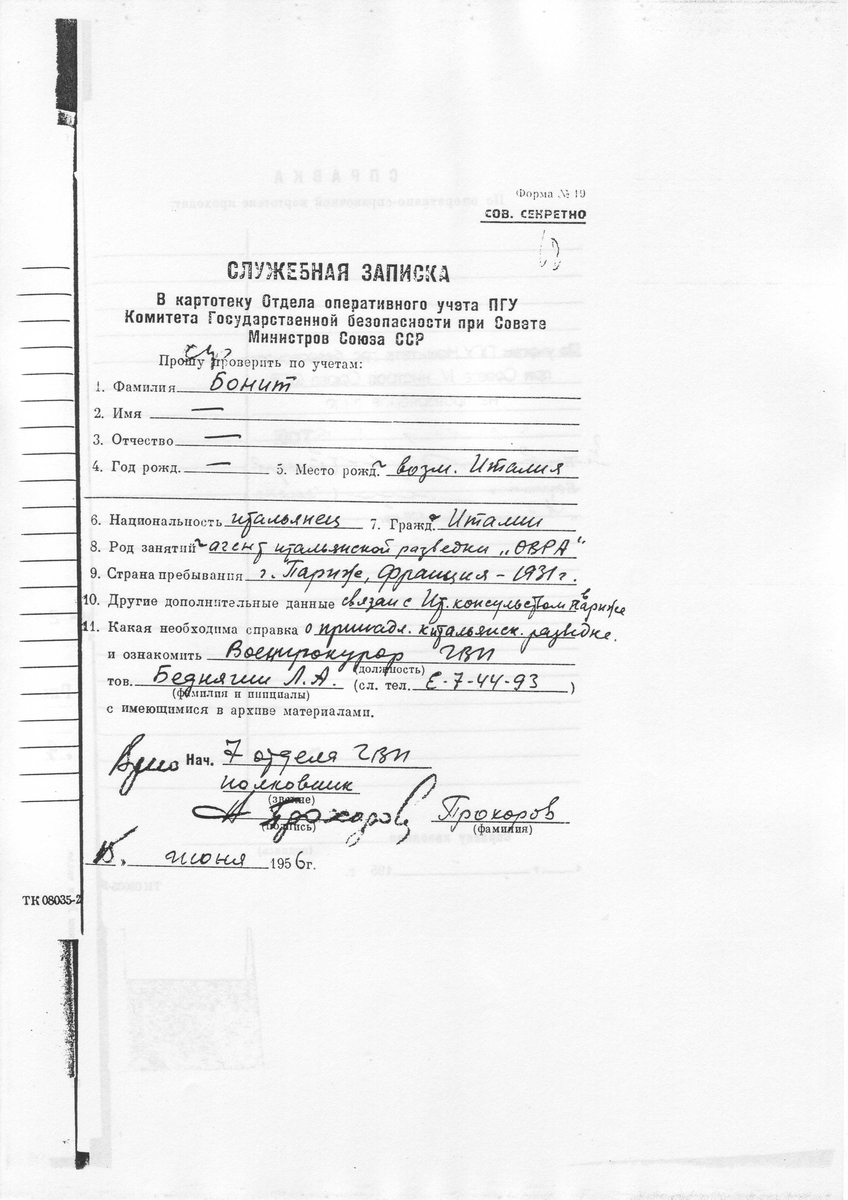 Форма № 19
СОВ. СЕКРЕТНО
СЛУЖЕБНАЯ ЗАПИСКА
В картотеку Отдела оперативного учета ПГУ
Комитета Государственной безопасности при Совете
Министров Союза ССР
Прошу проверить по учетам:
1. Фамилия Бонит
2. Имя —
3. Отчество —
4. Год рожд. — 5. Место рожд. возм. Италия
6. Национальность итальянец 7. Гражд. Италии
8. Род занятий агент итальянской разведки „ОВРА"
9. Страна пребывания г. Париж, Франция - 1931 г.
10. Другие дополнительные данные связан с Ит. консульством в Париже
11. Какая необходима справка о принадл. к итальянск. разведке.
и ознакомить Военпрокурор ГВП
(должность)
тов. Беднягин Л.А. (сл. тел. Е-7-44-93)
(фамилия и инициалы)
с имеющимися в архиве материалами.
Врио Нач. 7 отдела ГВП
полковник
(звание)
Прохоров Прохоров
(подпись) (фамилия)
15 июня 1956 г.
ТК 08035-2
СПРАВКА